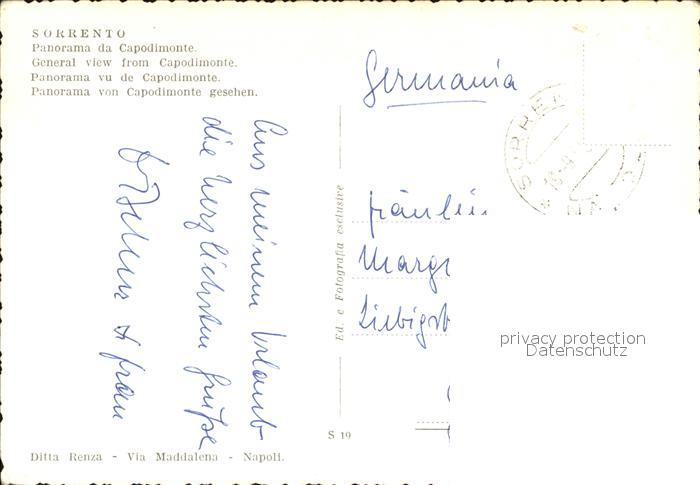 SORRENTO
Panorama da Capodimonte.
General view from Capodimonte.
Panorama vu de Capodimonte.
Panorama von Capodimonte gesehen.
Aus meinem Urlaub
die herzlichsten Grüße
& Frau
Ed. e Fotografia esclusive
Germania
SORRE
Fräulei
Marg
Liebigst
privacy protection
Datenschutz
S 19
Ditta Renza - Via Maddalena - Napoli.